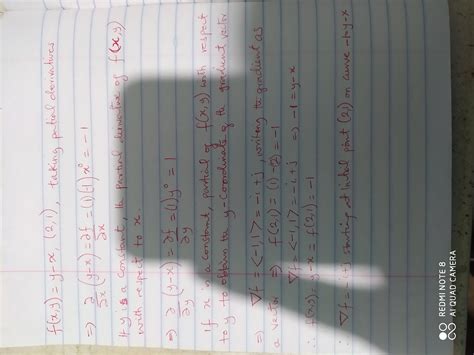 f(x,y) = y-x, (2,1), taking partial derivatives
⇒ ∂/∂x (y-x) = ∂f/∂x = (1)(-1)x⁰ = -1
If y is a constant, the partial derivative of f(x,y)
with respect to x.
⇒ ∂/∂y (y-x) = ∂f/∂y = (1)y⁰ = 1
If x is a constant, partial of f(x,y) with respect
to y to obtain the y-coordinate of the gradient vector
⇒ ∇f = <-1,1> = -i+j, writing the gradient as
a vector ⇒ f(2,1) = (1)-(2) = -1
∇f = <-1,1> = -i+j
∴ f(x,y) = y-x = f(2,1) = -1 ⇒ -1 = y-x
∴ ∇f = -i+j starting at initial point (2,1) on curve -1=y-x
REDMI NOTE 8
AI QUAD CAMERA